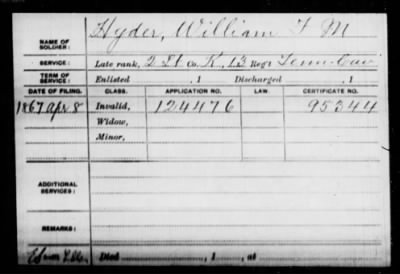 NAME OF SOLDIER: Hyder, William F M
SERVICE: Late rank, 2 Lt Co. K, 13 Reg't Tenn Cav
TERM OF SERVICE: Enlisted , 1 Discharged , 1
DATE OF FILING. CLASS. APPLICATION NO. LAW. CERTIFICATE NO.
1867 Apr 8 Invalid, 124476 95344
Widow,
Minor,
ADDITIONAL SERVICES:
REMARKS:
Died , 1 , at